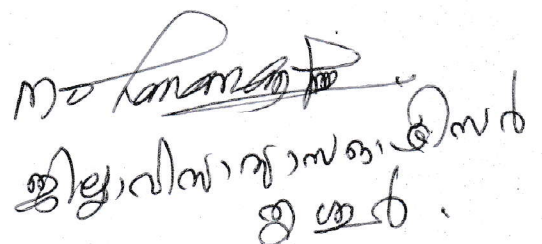 ജില്ലാവിദ്യാഭ്യാസ ഓഫീസർ
തൃശ്ശൂർ.